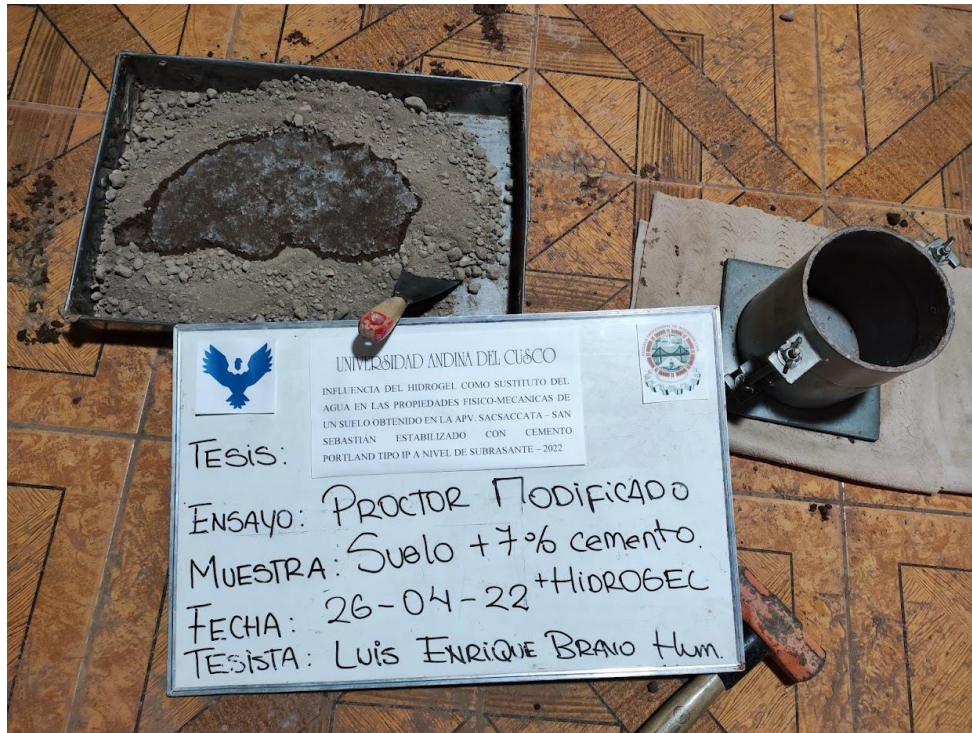 UNIVERSIDAD ANDINA DEL CUSCO
INFLUENCIA DEL HIDROGEL COMO SUSTITUTO DEL
AGUA EN LAS PROPIEDADES FISICO-MECANICAS DE
UN SUELO OBTENIDO EN LA APV. SACSACCATA – SAN
SEBASTIÁN ESTABILIZADO CON CEMENTO
PORTLAND TIPO IP A NIVEL DE SUBRASANTE – 2022
TESIS:
ENSAYO: PROCTOR MODIFICADO
MUESTRA: Suelo + 7% cemento.
+HIDROGEL
FECHA: 26-04-22
TESISTA: LUIS ENRIQUE BRAVO Hum.